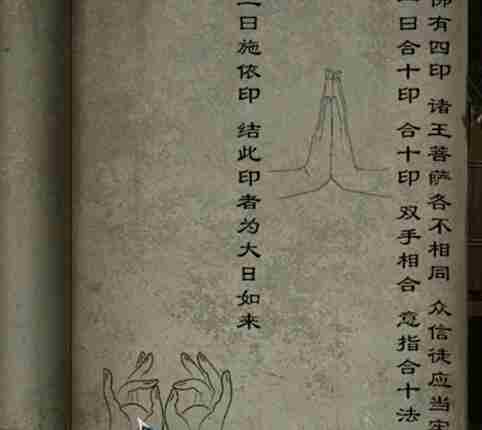 佛有四印 诸王菩萨各不相同 众信徒应当牢
一曰合十印 合十印 双手相合 意指合十法
二曰施依印 结此印者为大日如来